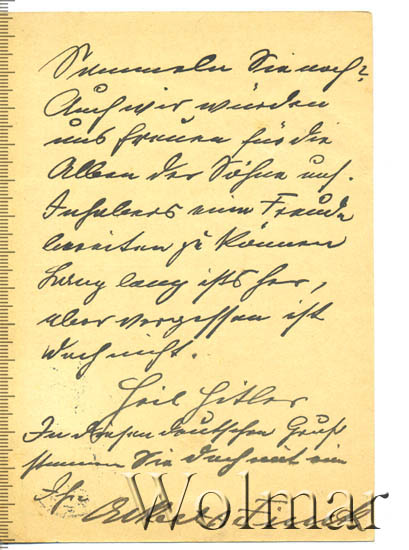 Sammeln Sie noch?
Auch wir würden
uns freuen für die
Alben der Söhne uns.
Inhabers eine Freude
bereiten zu können
Lang lang ists her,
aber vergessen ist
doch nicht.
Heil Hitler
In diesen deutschen Gruß
stimmen Sie doch mit ein
Ihr
Wolmar